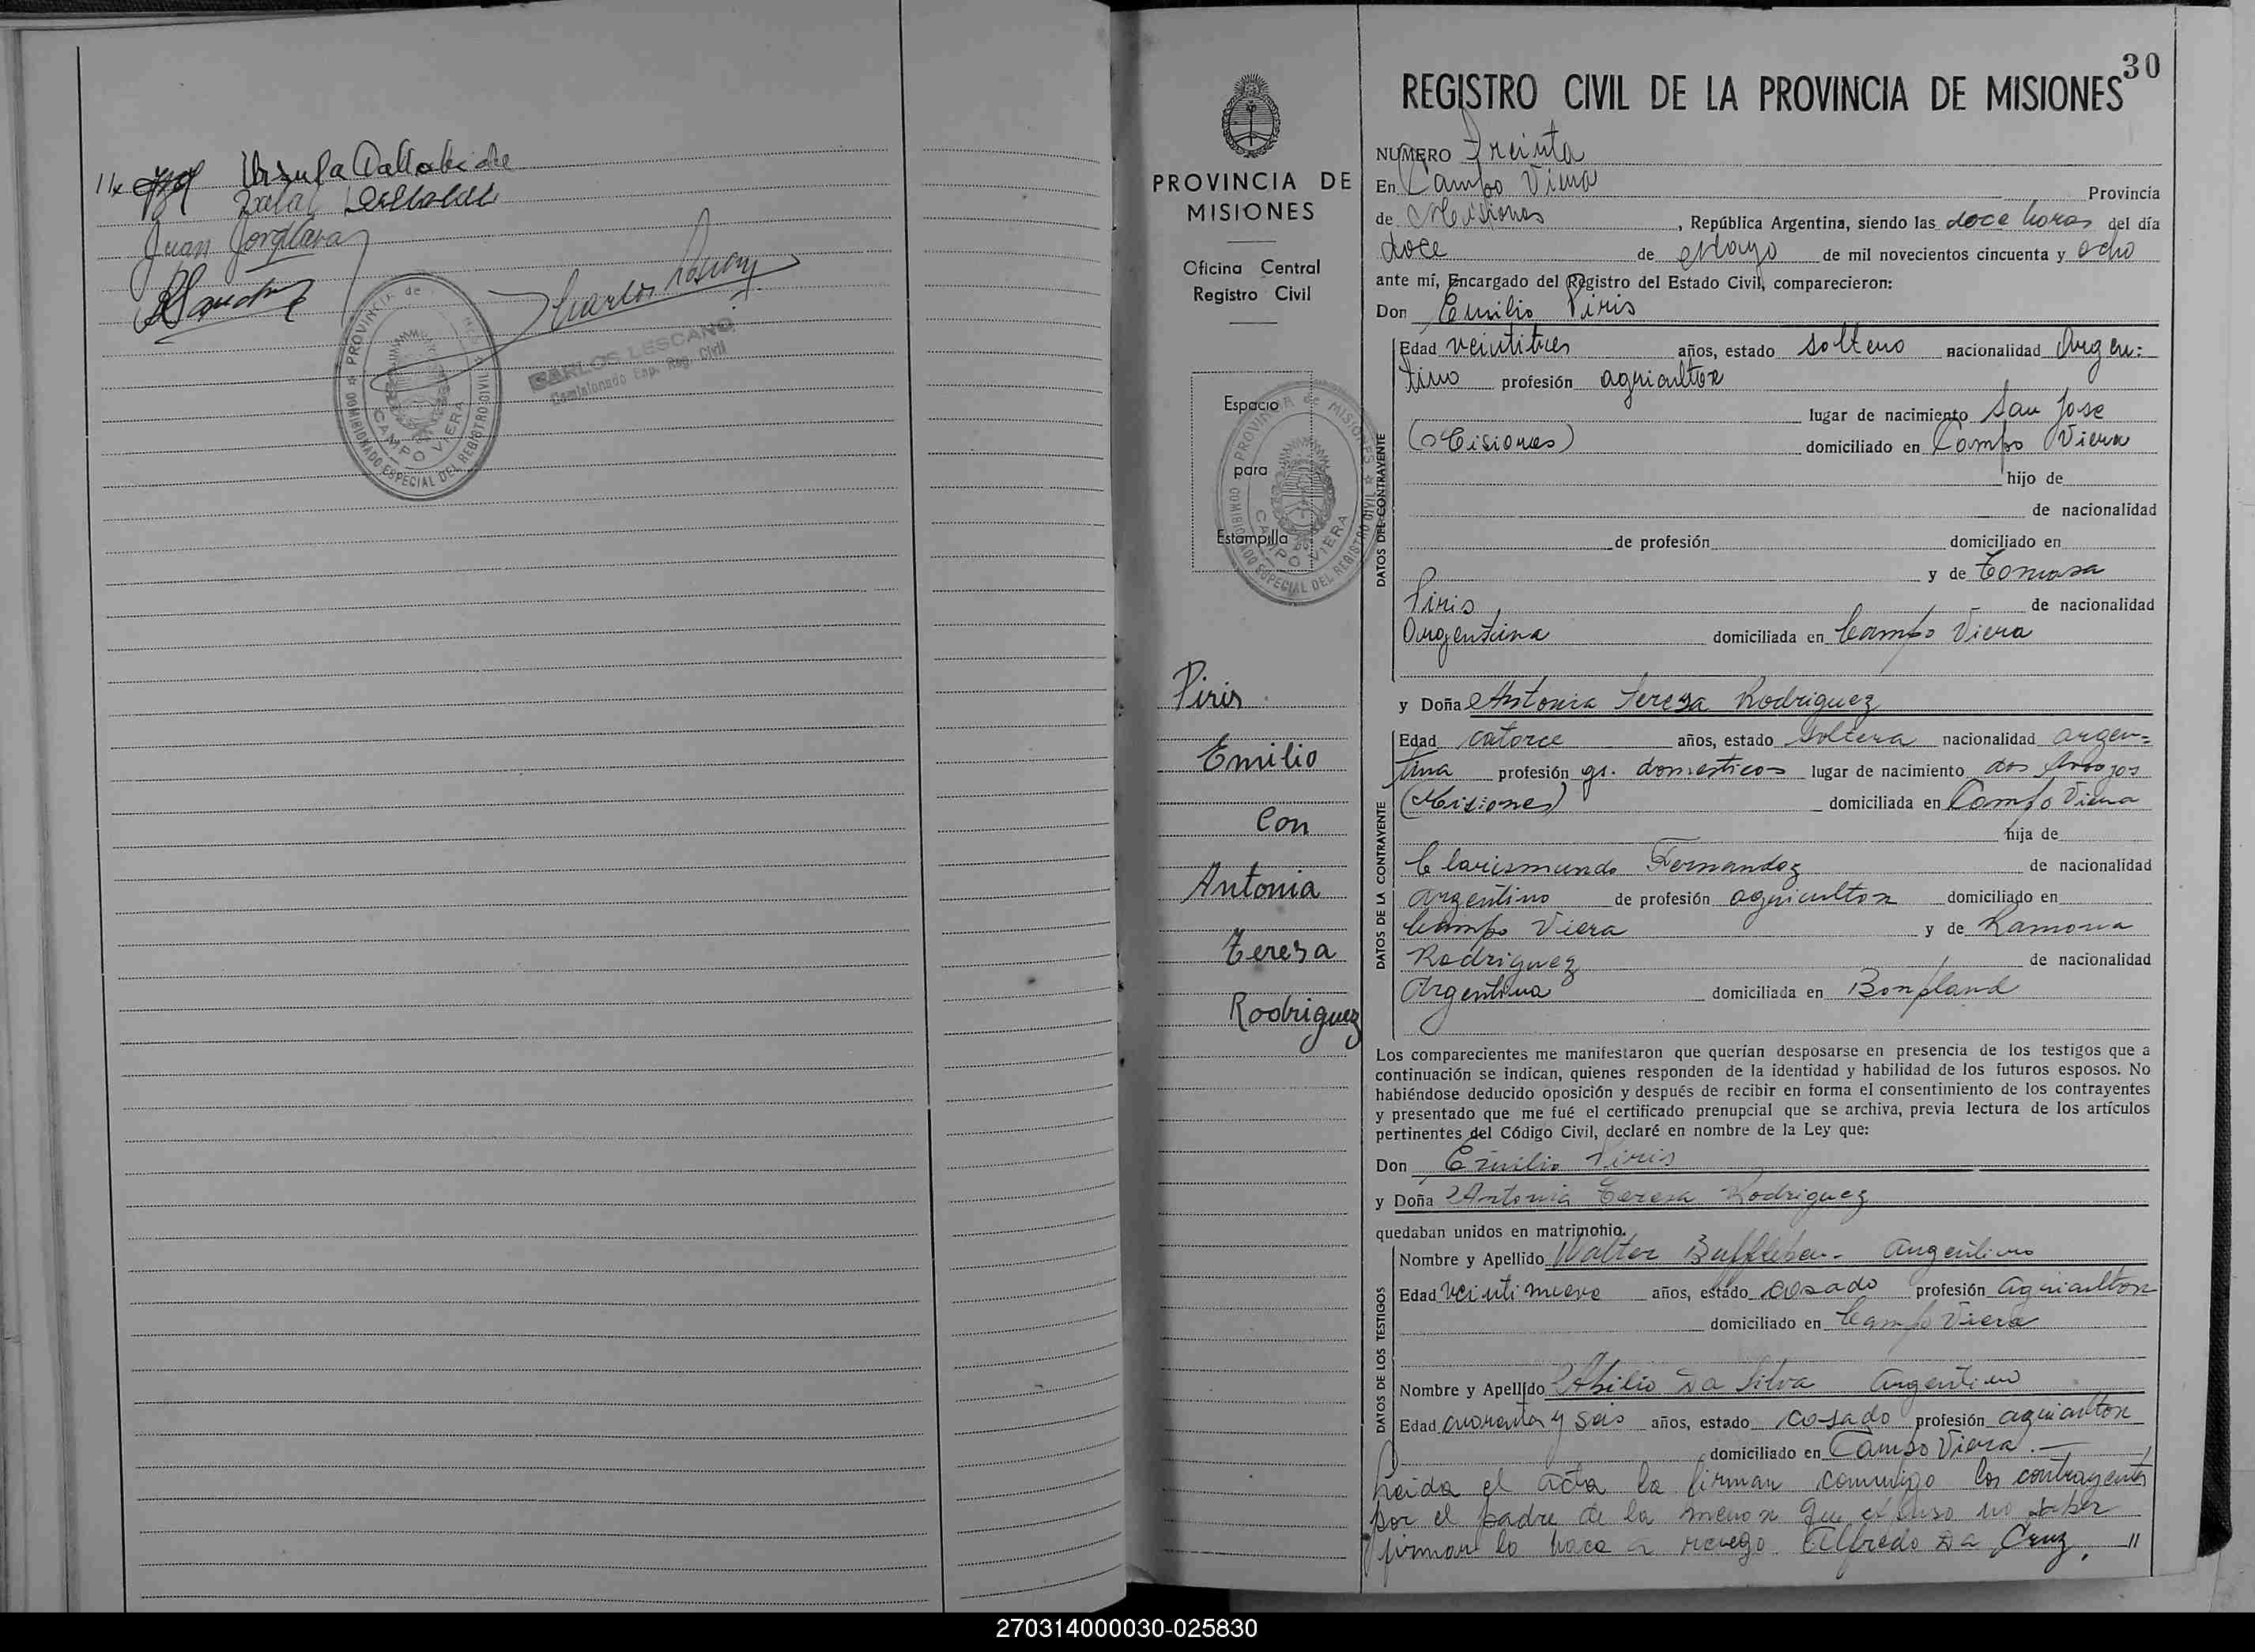 Ursula
Juan
CARLOS LESCANO
Comisionado Esp. Reg. Civil
PROVINCIA de MISIONES
CAMPO VIERA
COMISIONADO ESPECIAL DEL REGISTRO CIVIL
PROVINCIA DE
MISIONES
Oficina Central
Registro Civil
Espacio
para
Estampilla
PROVINCIA de MISIONES
CAMPO VIERA
COMISIONADO ESPECIAL DEL REGISTRO CIVIL
Piris
Emilio
Con
Antonia
Teresa
Rodriguez
30
REGISTRO CIVIL DE LA PROVINCIA DE MISIONES
NUMERO Treinta
En Campo Viera Provincia
de Misiones, República Argentina, siendo las doce horas del día
doce de Mayo de mil novecientos cincuenta y ocho
ante mí, Encargado del Registro del Estado Civil, comparecieron:
Don Emilio Piris
DATOS DEL CONTRAYENTE
Edad veintitres años, estado soltero nacionalidad Argen-
tino profesión agricultor
lugar de nacimiento San Jose
(Misiones) domiciliado en Campo Viera
hijo de
de nacionalidad
de profesión domiciliado en
y de Tomasa
Piris, de nacionalidad
Argentina domiciliada en Campo Viera
y Doña Antonia Teresa Rodriguez
DATOS DE LA CONTRAYENTE
Edad catorce años, estado soltera nacionalidad argen=
tina profesión qs. domesticos lugar de nacimiento dos Arroyos
(Misiones) domiciliada en Campo Viera
hija de
Clarismundo Fernandez de nacionalidad
Argentino de profesión agricultor domiciliado en
Campo Viera y de Ramona
Rodriguez, de nacionalidad
Argentina domiciliada en Bonpland
Los comparecientes me manifestaron que querían desposarse en presencia de los testigos que a
continuación se indican, quienes responden de la identidad y habilidad de los futuros esposos. No
habiéndose deducido oposición y después de recibir en forma el consentimiento de los contrayentes
y presentado que me fué el certificado prenupcial que se archiva, previa lectura de los artículos
pertinentes del Código Civil, declaré en nombre de la Ley que:
Don Emilio Piris
y Doña Antonia Teresa Rodriguez
quedaban unidos en matrimonio.
DATOS DE LOS TESTIGOS
Nombre y Apellido Walter Argentino
Edad veintinueve años, estado casado profesión agricultor
domiciliado en Campo Viera
Nombre y Apellido Abilio Da Silva Argentino
Edad cuarenta y seis años, estado casado profesión agricultor
domiciliado en Campo Viera.—
Leida el acta la firman conmigo los contrayentes
por el padre de la menor que expuso no saber
firmar lo hace a ruego Alfredo Da Cruz, "
270314000030-025830